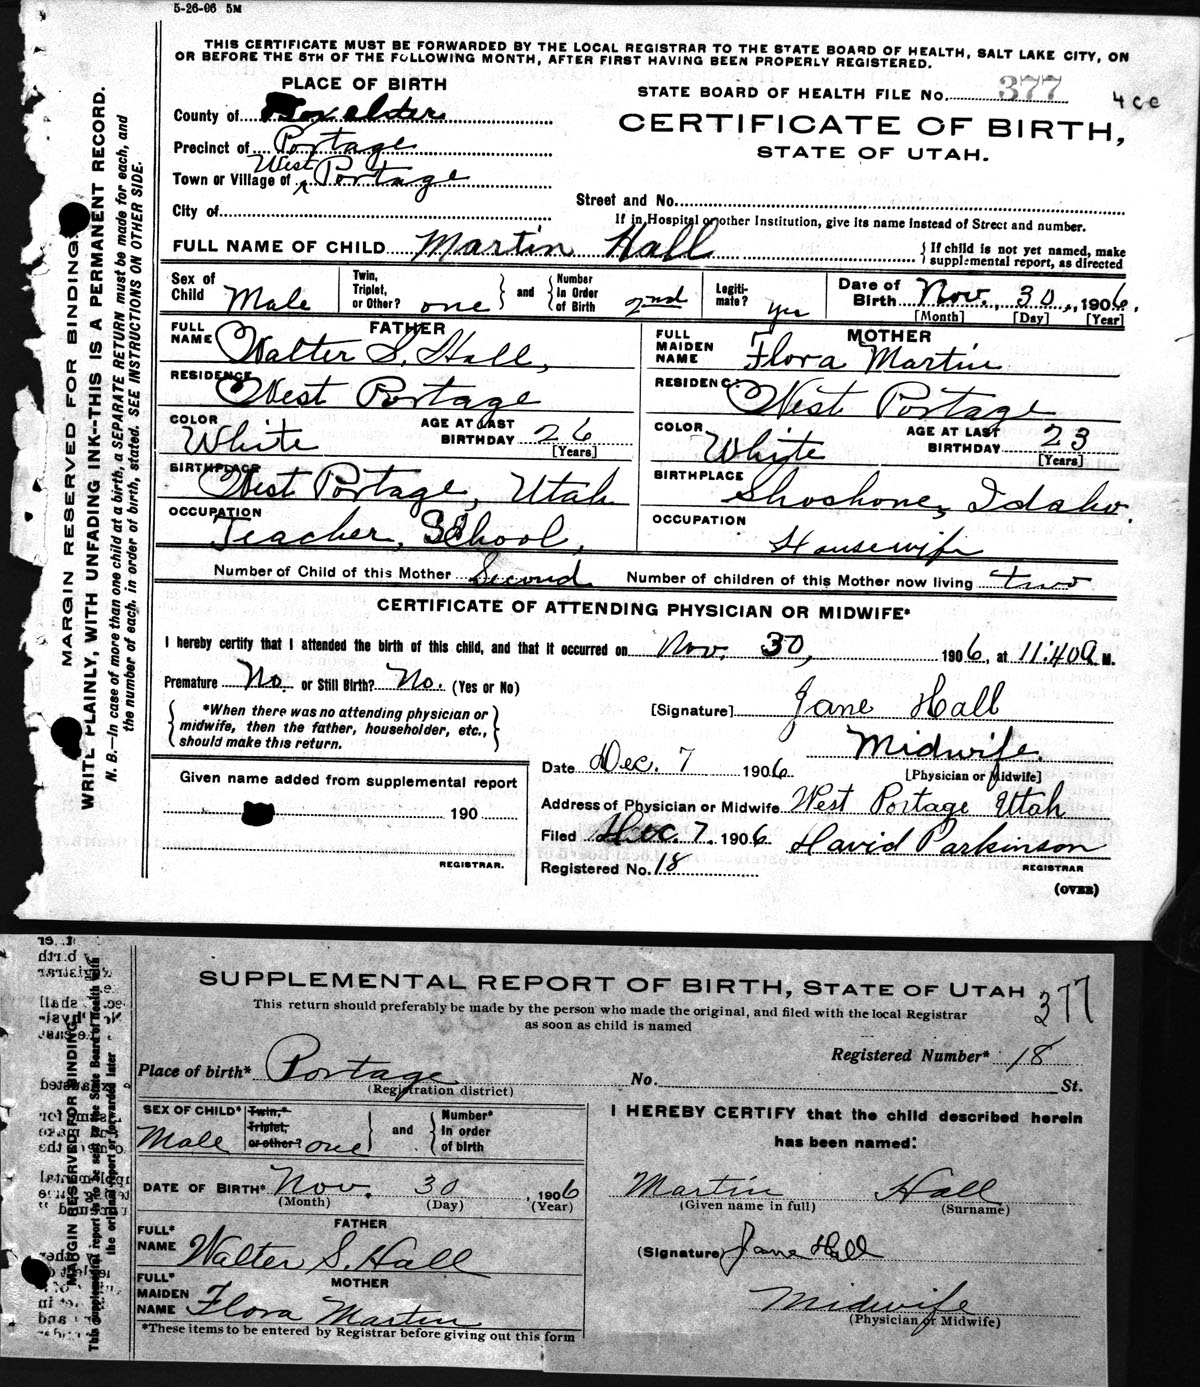 5-26-06 5M
THIS CERTIFICATE MUST BE FORWARDED BY THE LOCAL REGISTRAR TO THE STATE BOARD OF HEALTH, SALT LAKE CITY, ON
OR BEFORE THE 5TH OF THE FOLLOWING MONTH, AFTER FIRST HAVING BEEN PROPERLY REGISTERED.
MARGIN RESERVED FOR BINDING.
WRITE PLAINLY, WITH UNFADING INK--THIS IS A PERMANENT RECORD.
N. B.—In case of more than one child at a birth, a SEPARATE RETURN must be made for each, and
the number of each, in order of birth, stated. SEE INSTRUCTIONS ON OTHER SIDE.
PLACE OF BIRTH
County of Box elder
Precinct of Portage
Town or Village of West Portage
City of
STATE BOARD OF HEALTH FILE No. 377 4 c c
CERTIFICATE OF BIRTH,
STATE OF UTAH.
Street and No.
If in Hospital or other Institution, give its name instead of Street and number.
FULL NAME OF CHILD Martin Hall { If child is not yet named, make
supplemental report, as directed
Sex of Child Male
Twin, Triplet, or Other? one } and { Number in Order of Birth 2nd
Legiti-mate? yes
Date of Birth Nov. 30, 1906.
[Month] [Day] [Year]
FATHER
FULL NAME Walter S. Hall,
RESIDENCE West Portage
COLOR White AGE AT LAST BIRTHDAY 26
[Years]
BIRTHPLACE West Portage, Utah
OCCUPATION Teacher, School,
MOTHER
FULL MAIDEN NAME Flora Martin
RESIDENCE West Portage
COLOR White AGE AT LAST BIRTHDAY 23
[Years]
BIRTHPLACE Shoshone, Idaho.
OCCUPATION Housewife
Number of Child of this Mother Second Number of children of this Mother now living two
CERTIFICATE OF ATTENDING PHYSICIAN OR MIDWIFE*
I hereby certify that I attended the birth of this child, and that it occurred on Nov. 30, 1906, at 11:40 a M.
Premature No. or Still Birth? No. (Yes or No)
{ *When there was no attending physician or
midwife, then the father, householder, etc.,
should make this return. }
[Signature] Jane Hall
Midwife.
[Physician or Midwife]
Date Dec. 7 1906.
Address of Physician or Midwife West Portage Utah
Filed Dec. 7. 1906 David Parkinson
REGISTRAR
Registered No. 18
(OVER)
Given name added from supplemental report
190
REGISTRAR.
SUPPLEMENTAL REPORT OF BIRTH, STATE OF UTAH 377
This return should preferably be made by the person who made the original, and filed with the local Registrar
as soon as child is named
MARGIN RESERVED FOR BINDING
This supplemental report to be sent to the State Board of Health with
the original report or forwarded later
Registered Number* 18
Place of birth* Portage No. St.
(Registration district)
SEX OF CHILD* Male
Twin,* Triplet, or other? one } and { Number* in order of birth
DATE OF BIRTH* Nov. 30, 1906
(Month) (Day) (Year)
FATHER
FULL* NAME Walter S. Hall
MOTHER
FULL* MAIDEN NAME Flora Martin
*These items to be entered by Registrar before giving out this form
I HEREBY CERTIFY that the child described herein
has been named:
Martin Hall
(Given name in full) (Surname)
(Signature) Jane Hall
Midwife
(Physician or Midwife)